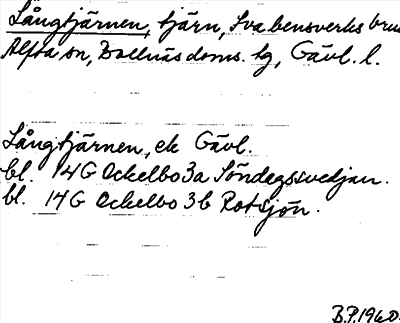 Långtjärnen, tjärn, Svabensverks bruk
Alfta sn, Bollnäs doms. tg, Gävl. l.
Långtjärnen, ek Gävl.
bl. 14G Ockelbo 3a Söndagssvedjan.
bl. 14G Ockelbo 3b Rotsjön.
B.P. 1960